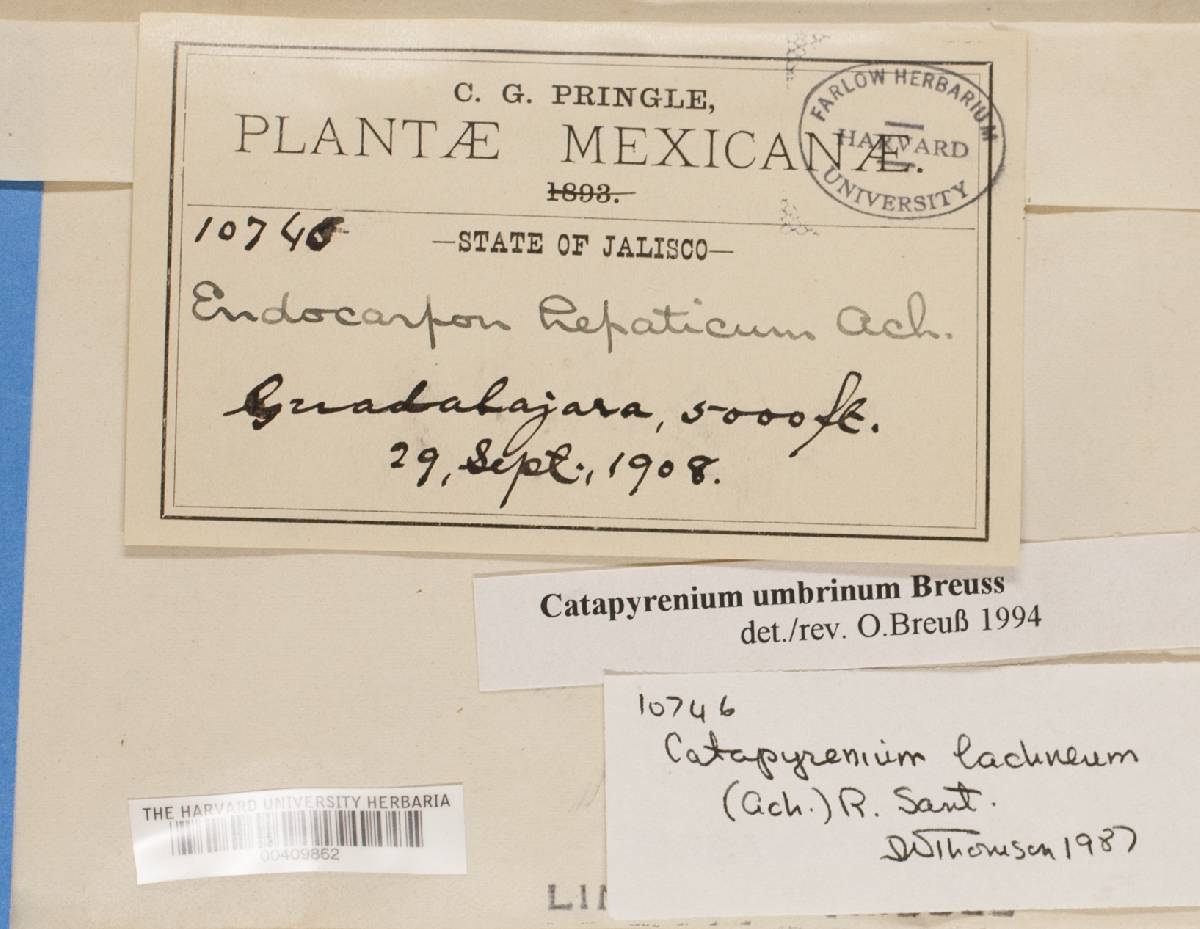 C. G. PRINGLE,
PLANTÆ MEXICANÆ.
1893.
FARLOW HERBARIUM
HARVARD
UNIVERSITY
10746
—STATE OF JALISCO—
Endocarpon hepaticum Ach.
Guadalajara, 5000 ft.
29, Sept., 1908.
Catapyrenium umbrinum Breuss
det./rev. O.Breuß 1994
10746
Catapyrenium lachneum
(Ach.) R. Sant.
JWThomson 1987
THE HARVARD UNIVERSITY HERBARIA
00409862